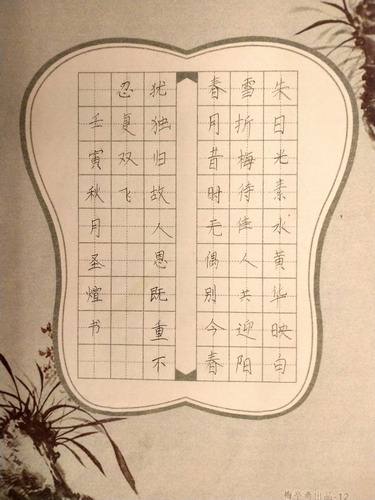 朱日光素水黄华映白
雪折梅待佳人共迎阳
春月昔时无偶别今春
犹独归故人恩既重不
忍夏双飞
壬寅秋月圣煊书